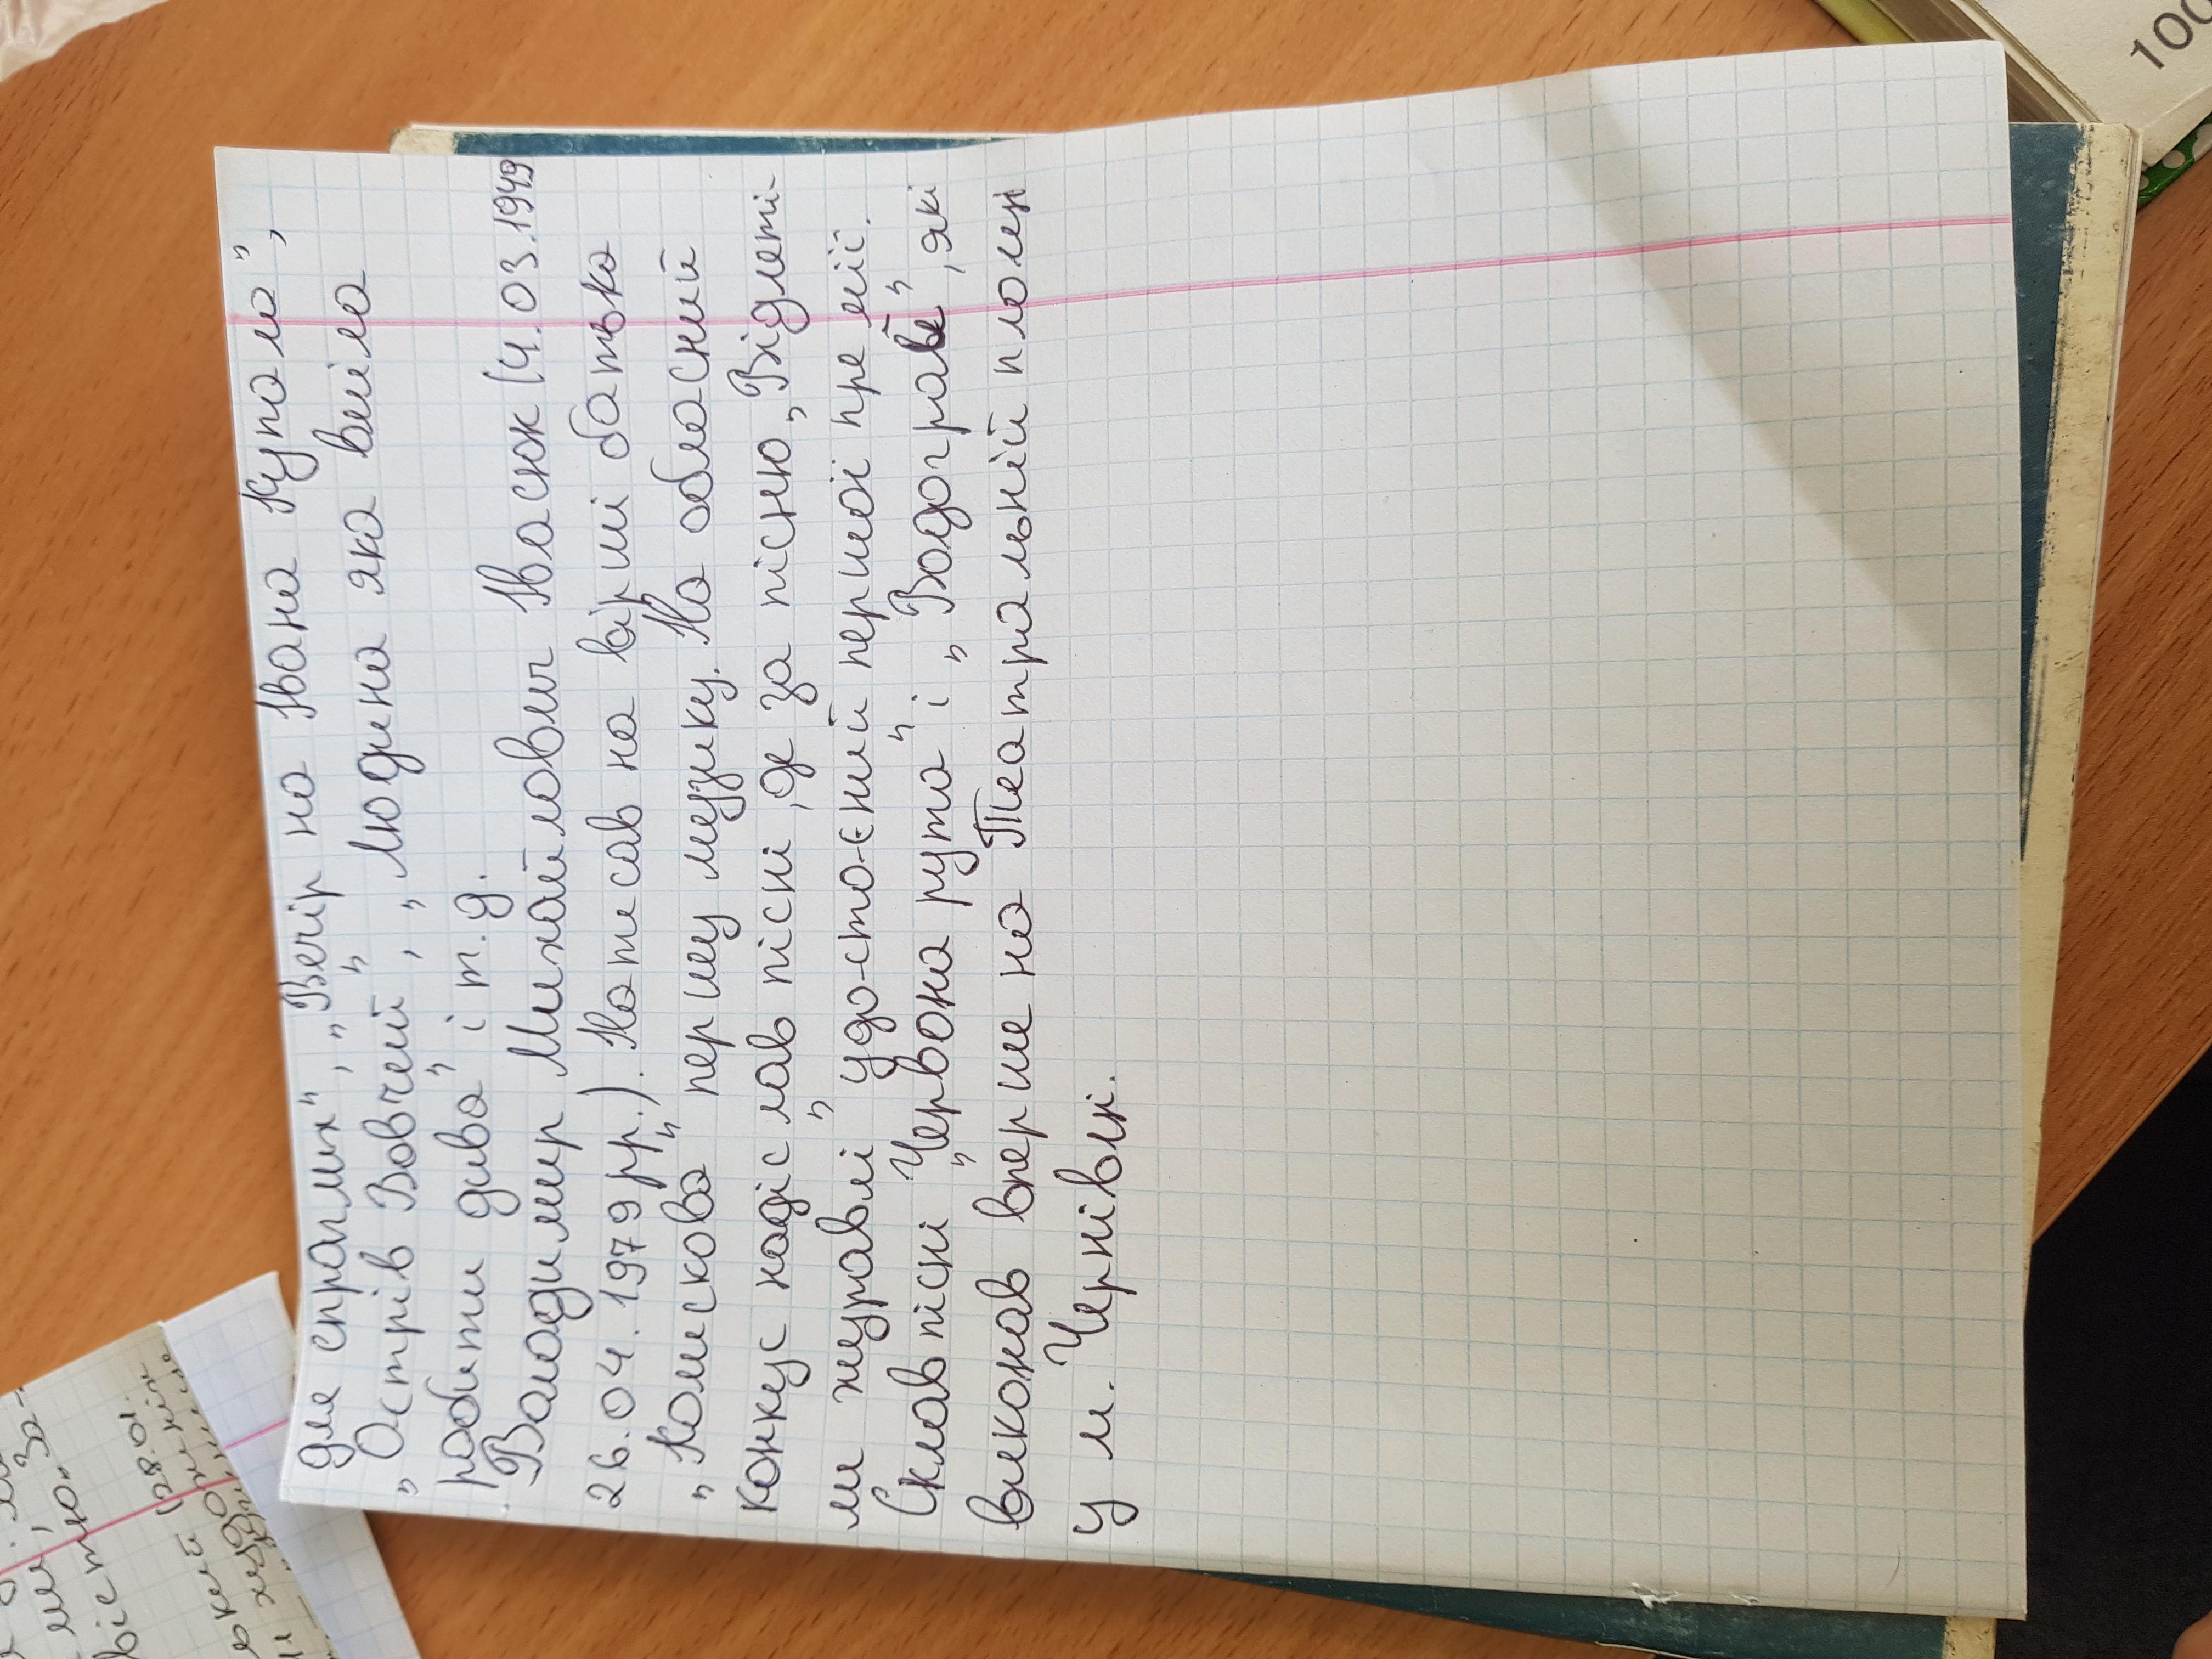 для спраглих", "Вечір на Івана Купала",
"Острів Вовчий", "Людина яка вміла
робити дива" і т.д.
Володимир Михайлович Івасюк (4.03.1949
26.04.1979 рр.). Написав на вірші батька
"Колискова" першу музику. На обласний
конкус надіслав пісні, де за пісню "Відлеті-
ли журавлі" удостоєний першої премії.
Склав пісні "Червона рута" і "Водограй", які
виконав вперше на Театральній площі
у м. Чернівці.
100
вістю.
(28.01.